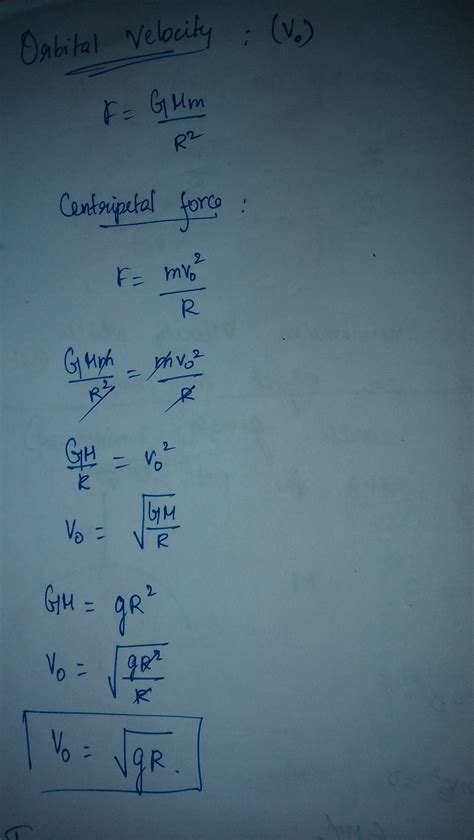 Orbital Velocity : (V₀)
F = GMm/R²
Centripetal force :
F = mv₀²/R
GMm/R² = mv₀²/R
GM/R = v₀²
V₀ = √(GM/R)
GM = gR²
V₀ = √(gR²/R)
V₀ = √gR.